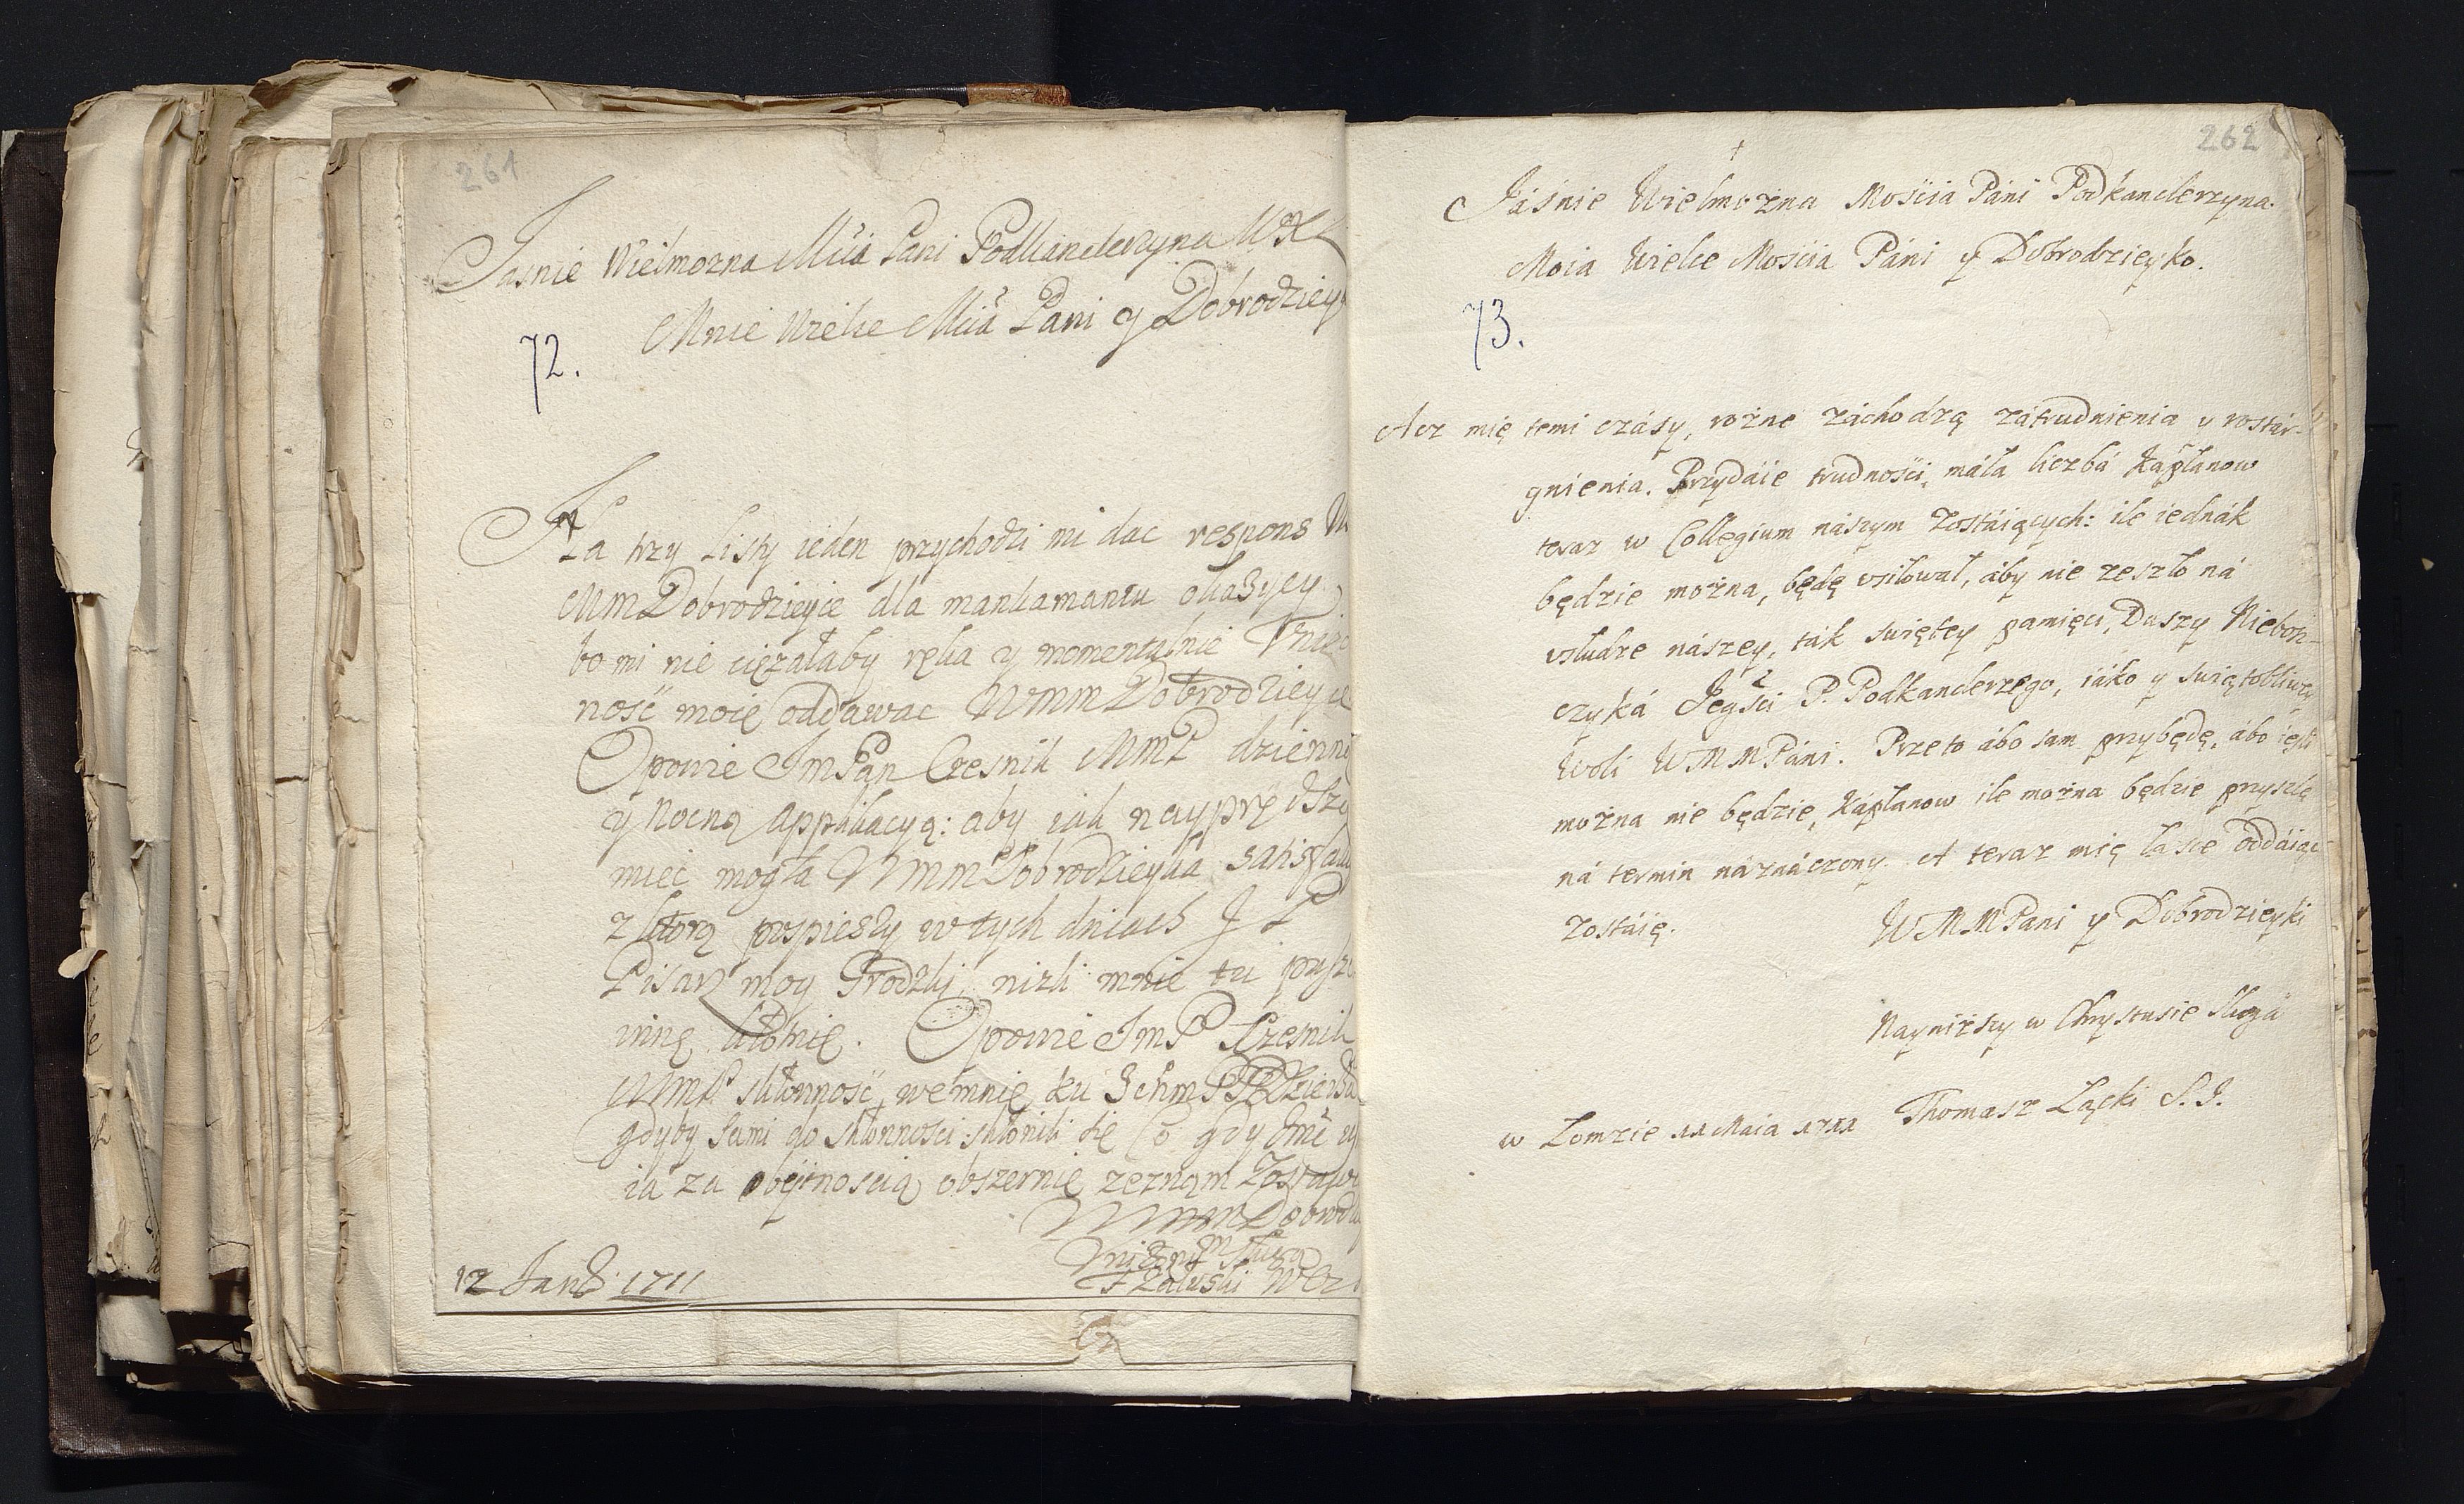 261
Jasnie Wielmozna Mcia Pani Podkanclerzyna WX
Mnie Wielce Mcia Pani y Dobrodziey
72.
Na trzy Listy ieden przychodzi mi dac respons
MmDobrodzieyce dla mankamantu okazycy
bo mi nie cięzałaby ręka y momentalnie Vniz
ność moię oddawac WmmDobrodzieyce
Opowie JmPan Czesnik MmP dzienną
y Nocną applikacyą: aby iak nayprędszą
miec mogła WmmDobrodzieyka satisfak
z ktorą pospieszy w tych dniach J P
Pisarz moy Grodzki nizli mnie tu przy
inne. Opowie JmP Czesnik
MmP skłonność wemnie ku
gdyby sami do skłonności skłonili się
ia za obszernie zeznam Zostaiąc
WmmDobrodz
Vniżony Sługa
Załuski
12 Janu: 1711
262
Jáśnie Wielmożna Mościa Páni Podkanclerzyna.
Moia Wielce Mościa Páni y Dobrodzieyko.
73.
Acz mię temi czásy, rożne záchodzą zátrudnienia y rostár-
gnienia. Przydáie trudności, máła liczbá Kápłanow
teraz w Collegium nászym zostáiących: ile iednák
będzie można, będę vsiłował, áby nie zeszło ná
vsłudze nászey, ták swiętey pamięci, Duszy Niebosz-
czyká Jegści P. Podkanclerzego, iáko y swiętobliwey
Woli WMMPáni. Przeto ábo sam przybędę, ábo ieśli
można nie będzie, Kápłanow ile można będzie przyszlę
ná termin náznáczony. A teraz mię łasce oddáiąc
zostáię. WMMPani y Dobrodzieyki
Nayniższy w Chrystusie Sługá
w Lomzie 11 Maia 1711 Thomasz Łącki S. J.